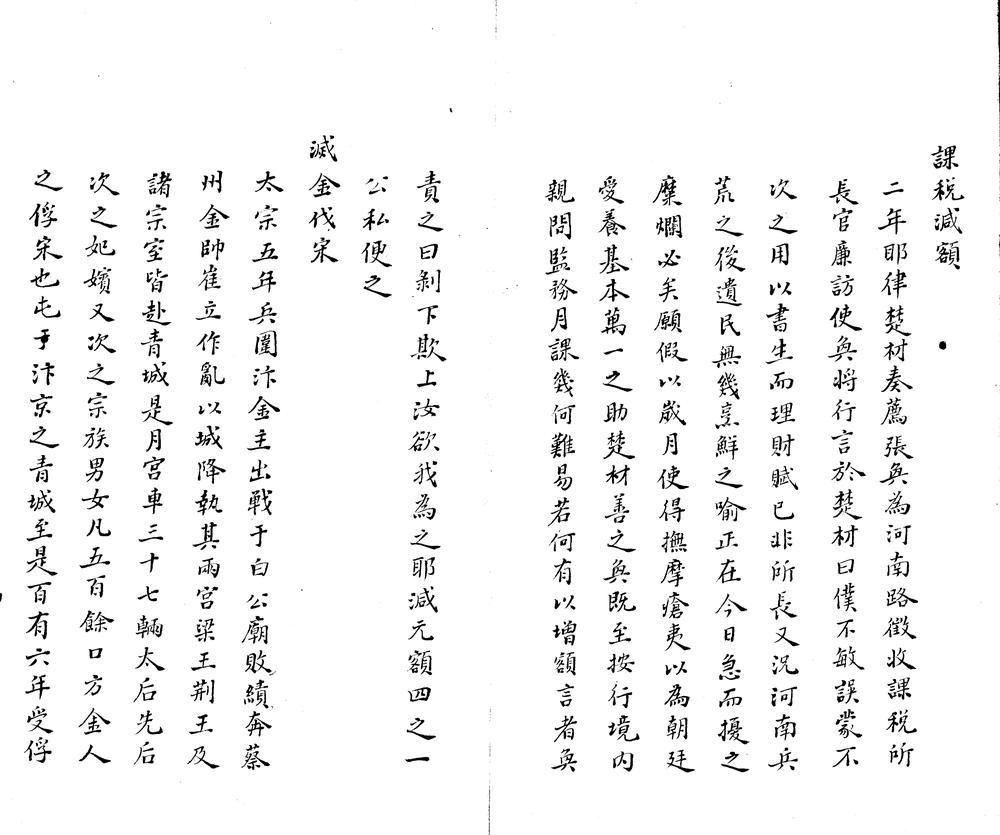 課税減額
二年耶律楚材奏薦張奐為河南路徴收課税所
長官廉訪使奐将行言於楚材曰僕不敏誤蒙不
次之用以書生而理財賦已非所長又況河南兵
荒之後遺民無幾烹鮮之喻正在今日急而擾之
糜爛必矣願假以歳月使得撫摩瘡夷以為朝廷
受養基本萬一之助楚材善之奐既至按行境内
親問監務月課幾何難易若何有以增額言者奐
責之曰剝下欺上汝欲我為之耶減元額四之一
公私便之
滅金伐宋
太宗五年兵圍汴金主出戦于白公廟敗績奔蔡
州金帥崔立作亂以城降執其兩宮梁王荆王及
諸宗室皆赴青城是月宮車三十七輛太后先后
次之妃嬪又次之宗族男女凡五百餘口方金人
之俘宋也屯于汴京之青城至是百有六年受俘